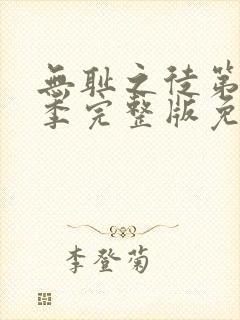 無耻之徒第
季完整版免
李登菊